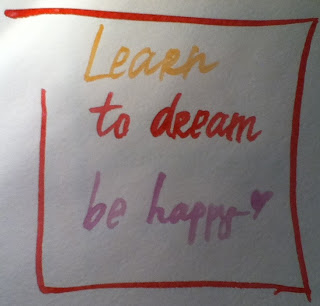 Learn
to dream
be happy ♥